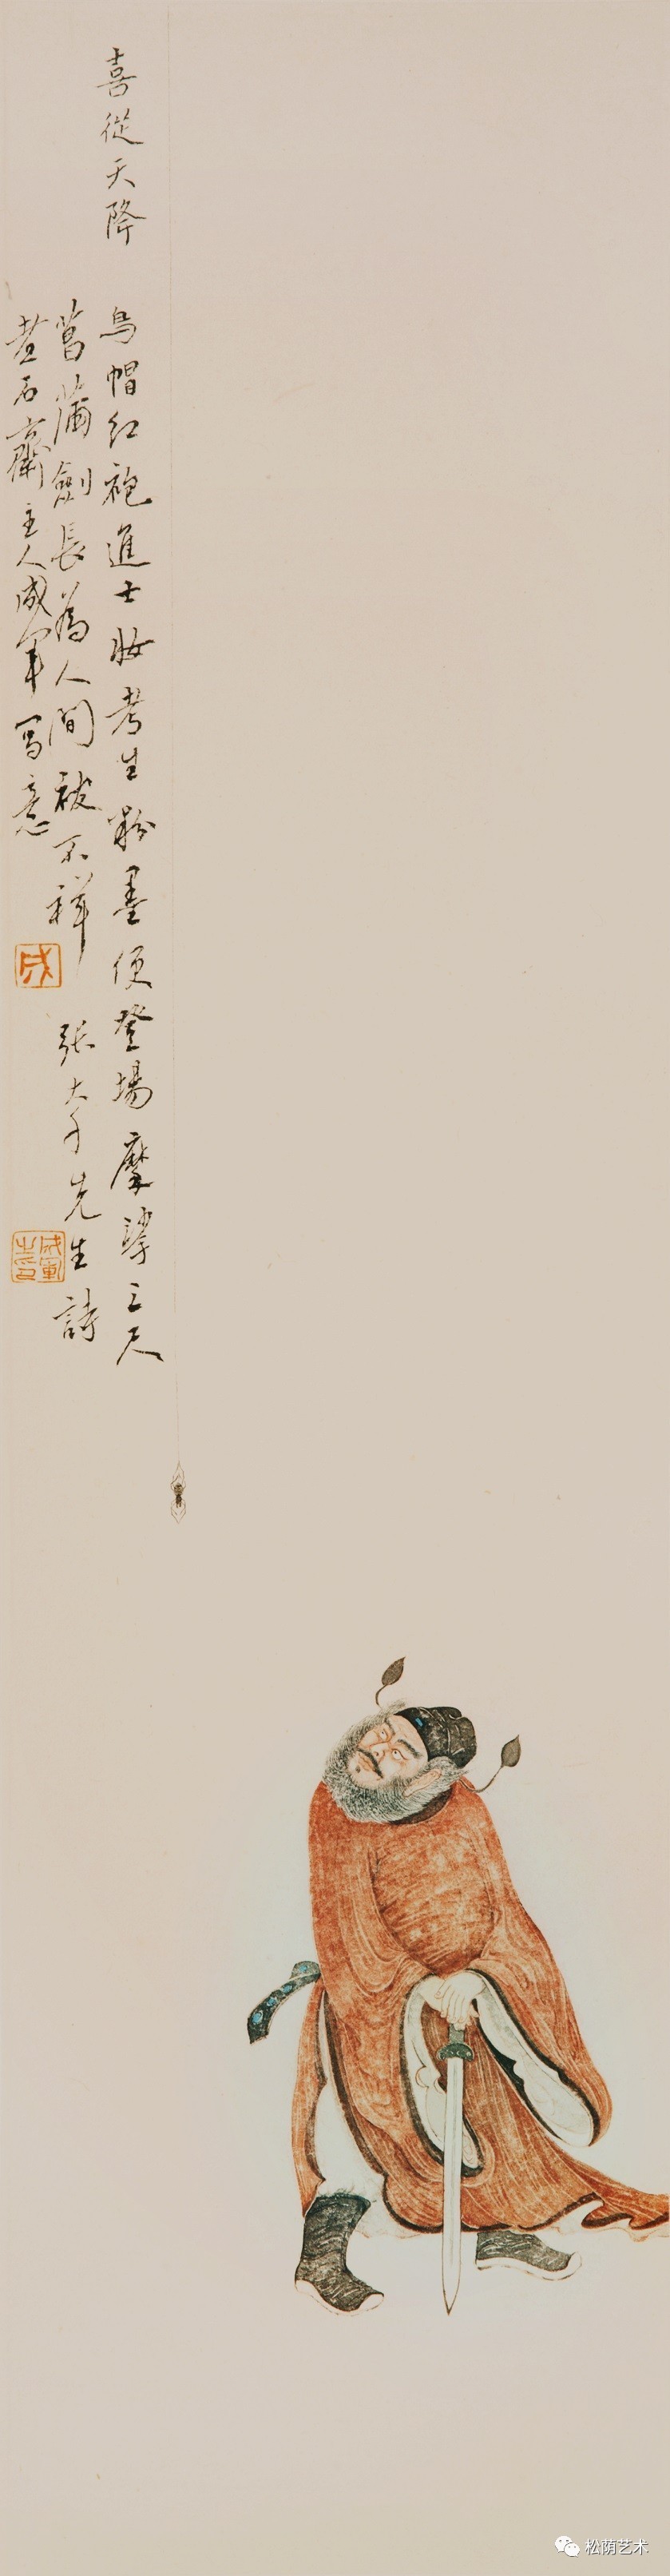 喜從天降
烏帽紅袍進士妝老生粉墨便登場摩挲三尺
菖蒲劍長為人間祓不祥 張大千先生詩
石齋主人成軍写意
成
成軍之印
松荫艺术